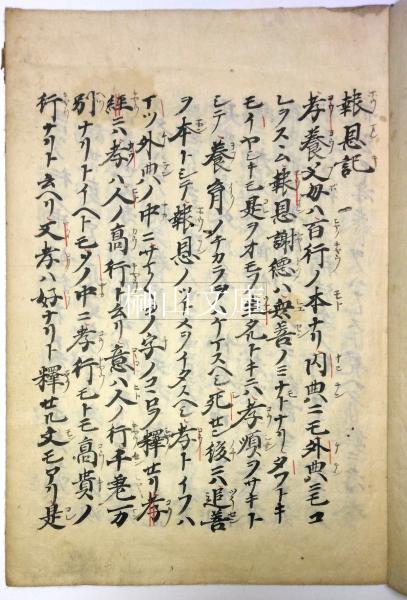 報恩記
孝養父母ハ百行ノ本ナリ内典ニモ外典ニモコ
レヲスヽム報恩謝徳ハ衆善ノミナトナリタフトキ
モイヤシキモ是ヲオモクス
シテ養育ノチカラヲ死セン後ニハ追善
ヲ本トシテ報恩ノツトメヲイタスヘシ孝トイフハ
外典ノ中ニ字ノコヱヲ釋セリ孝
經ニハ孝ハ人ノ高行ト云リ意ハ人ノ行千差万
別ナリトイヘトモソノ中ニ孝行モトモ高貴ノ
行ナリト云ヘリ又孝ハ好ナリト釋セル文モアリ是
榊山文庫